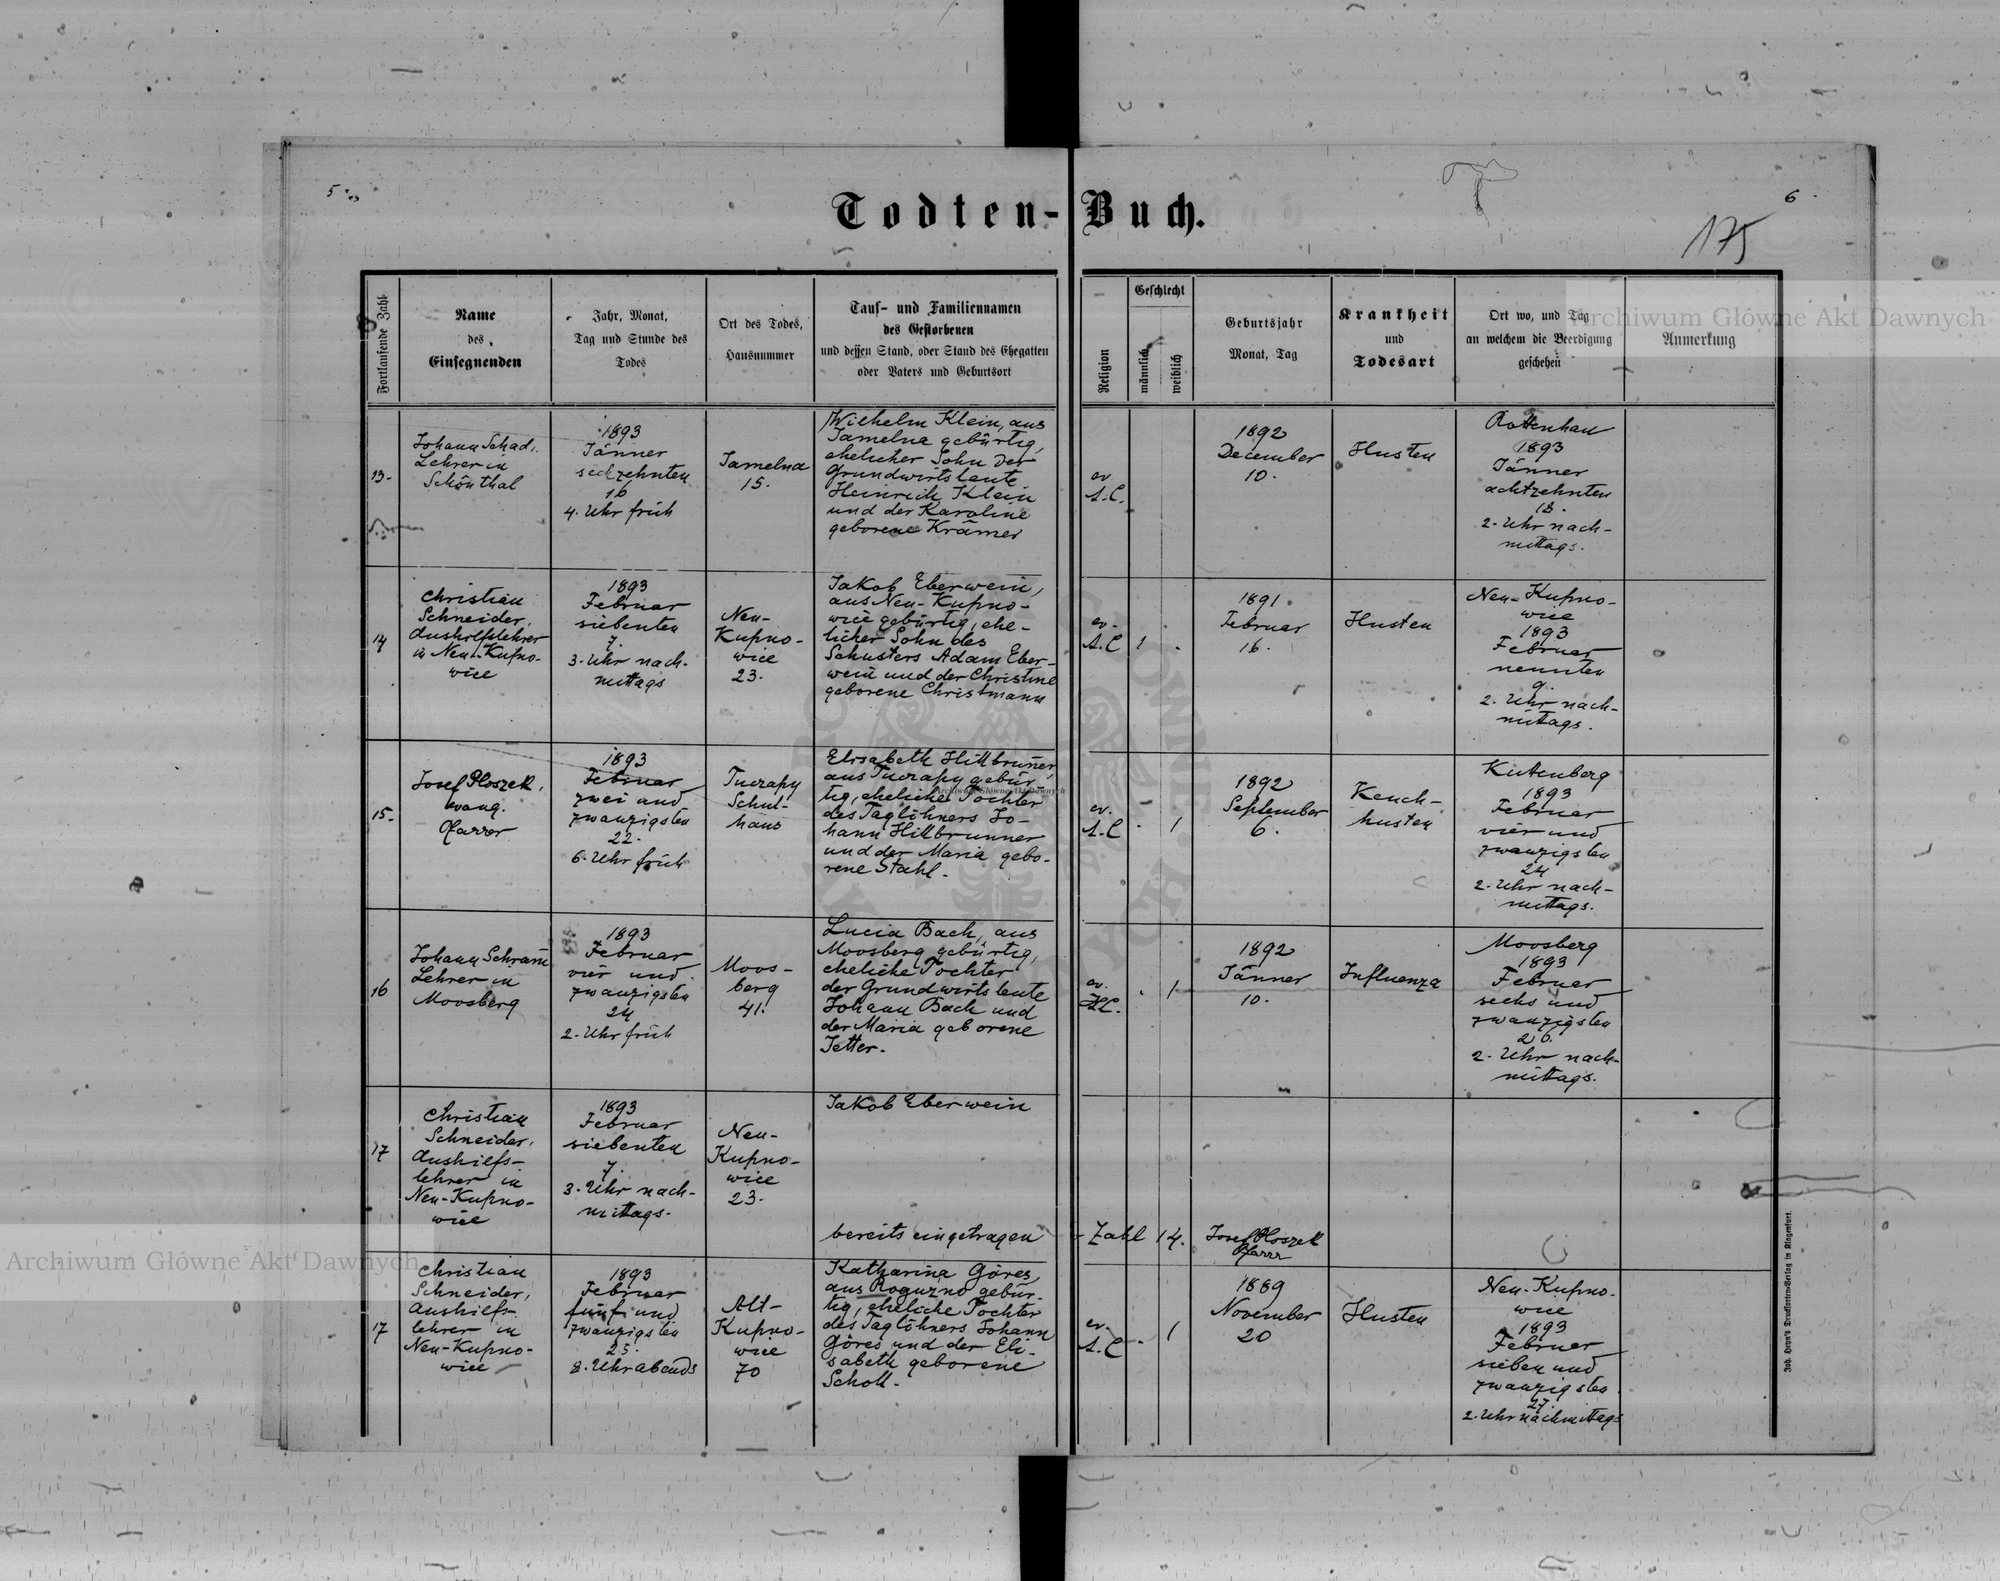 5
6
175
Todten-Buch.
Fortlaufende Zahl
Name
des
Einsegnenden
Jahr, Monat,
Tag und Stunde des
Todes
Ort des Todes,
Hausnummer
Tauf- und Familiennamen
des Gestorbenen
und dessen Stand, oder Stand des Ehegatten
oder Vaters und Geburtsort
Religion
Geschlecht
männlich
weiblich
Geburtsjahr
Monat, Tag
Krankheit
und
Todesart
Ort wo, und Tag
an welchem die Beerdigung
geschehen
Anmerkung
13.
Johann Schad,
Lehrer in
Schönthal
1893
Jänner
sechzehnten
16
4. Uhr früh
Jamelna
15.
Wilhelm Klein, aus
Jamelna gebürtig,
ehelicher Sohn der
Grundwirtsleute
Heinrich Klein
und der Karoline
geborene Krämer
ev.
A.C.
1892
December
10.
Husten
Rottenhan
1893
Jänner
achtzehnten
18.
2. Uhr nach-
mittags.
14
Christian
Schneider,
Aushilfslehrer
in Neu-Kupno-
wice
1893
Februar
siebenten
7.
3. Uhr nach-
mittags
Neu-
Kupno-
wice
23.
Jakob Eberwein,
aus Neu-Kupno-
wice gebürtig, ehe-
licher Sohn des
Schusters Adam Eber-
wein und der Christine
geborene Christmann
ev.
A.C
1
1891
Februar
16.
Husten
Neu-Kupno-
wice
1893
Februar
neunten
9.
2. Uhr nach-
mittags.
15.
Josef Ploszek,
evang.
Pfarrer
1893
Februar
zwei und
zwanzigsten
22.
6. Uhr früh
Tucrapy
Schul-
haus
Elisabeth Hillbrunner,
aus Tucrapy gebür-
tig, eheliche Tochter
des Taglöhners Jo-
hann Hillbrunner
und der Maria gebo-
rene Stahl.
ev.
A.C
1
1892
September
6.
Keuch-
husten
Kuttenberg
1893
Februar
vier und
zwanzigsten
24
2. Uhr nach-
mittags.
16
Johann Schram
Lehrer in
Moosberg
1893
Februar
vier und
zwanzigsten
24
2. Uhr früh
Moos-
berg
41.
Lucia Bach, aus
Moosberg gebürtig,
eheliche Tochter
der Grundwirtsleute
Johann Bach und
der Maria geborene
Jetter.
ev.
H.C.
1
1892
Jänner
10.
Influenza
Moosberg
1893
Februar
sechs und
zwanzigsten
26.
2. Uhr nach-
mittags.
17
Christian
Schneider,
Aushilfs-
lehrer in
Neu-Kupno-
wice
1893
Februar
siebenten
7.
3. Uhr nach-
mittags.
Neu-
Kupno-
wice
23.
Jakob Eberwein
bereits eingetragen - Zahl 14. Josef Ploszek
Pfarrer
17
Christian
Schneider,
Aushilfs-
lehrer in
Neu-Kupno-
wice
1893
Februar
fünf und
zwanzigsten
25.
8. Uhr abends
Alt-
Kupno-
wice
70
Katharina Göres,
aus Roguzno gebür-
tig, eheliche Tochter
des Taglöhners Johann
Göres und der Eli-
sabeth geborene
Scholl.
ev.
A.C
1
1889
November
20
Husten
Neu-Kupno-
wice
1893
Februar
sieben und
zwanzigsten
27.
2. Uhr nachmittags
Joh. Heyn's Drucksorten-Verlag in Klagenfurt.
Archiwum Główne Akt Dawnych
Archiwum Główne Akt Dawnych
Archiwum Główne Akt Dawnych